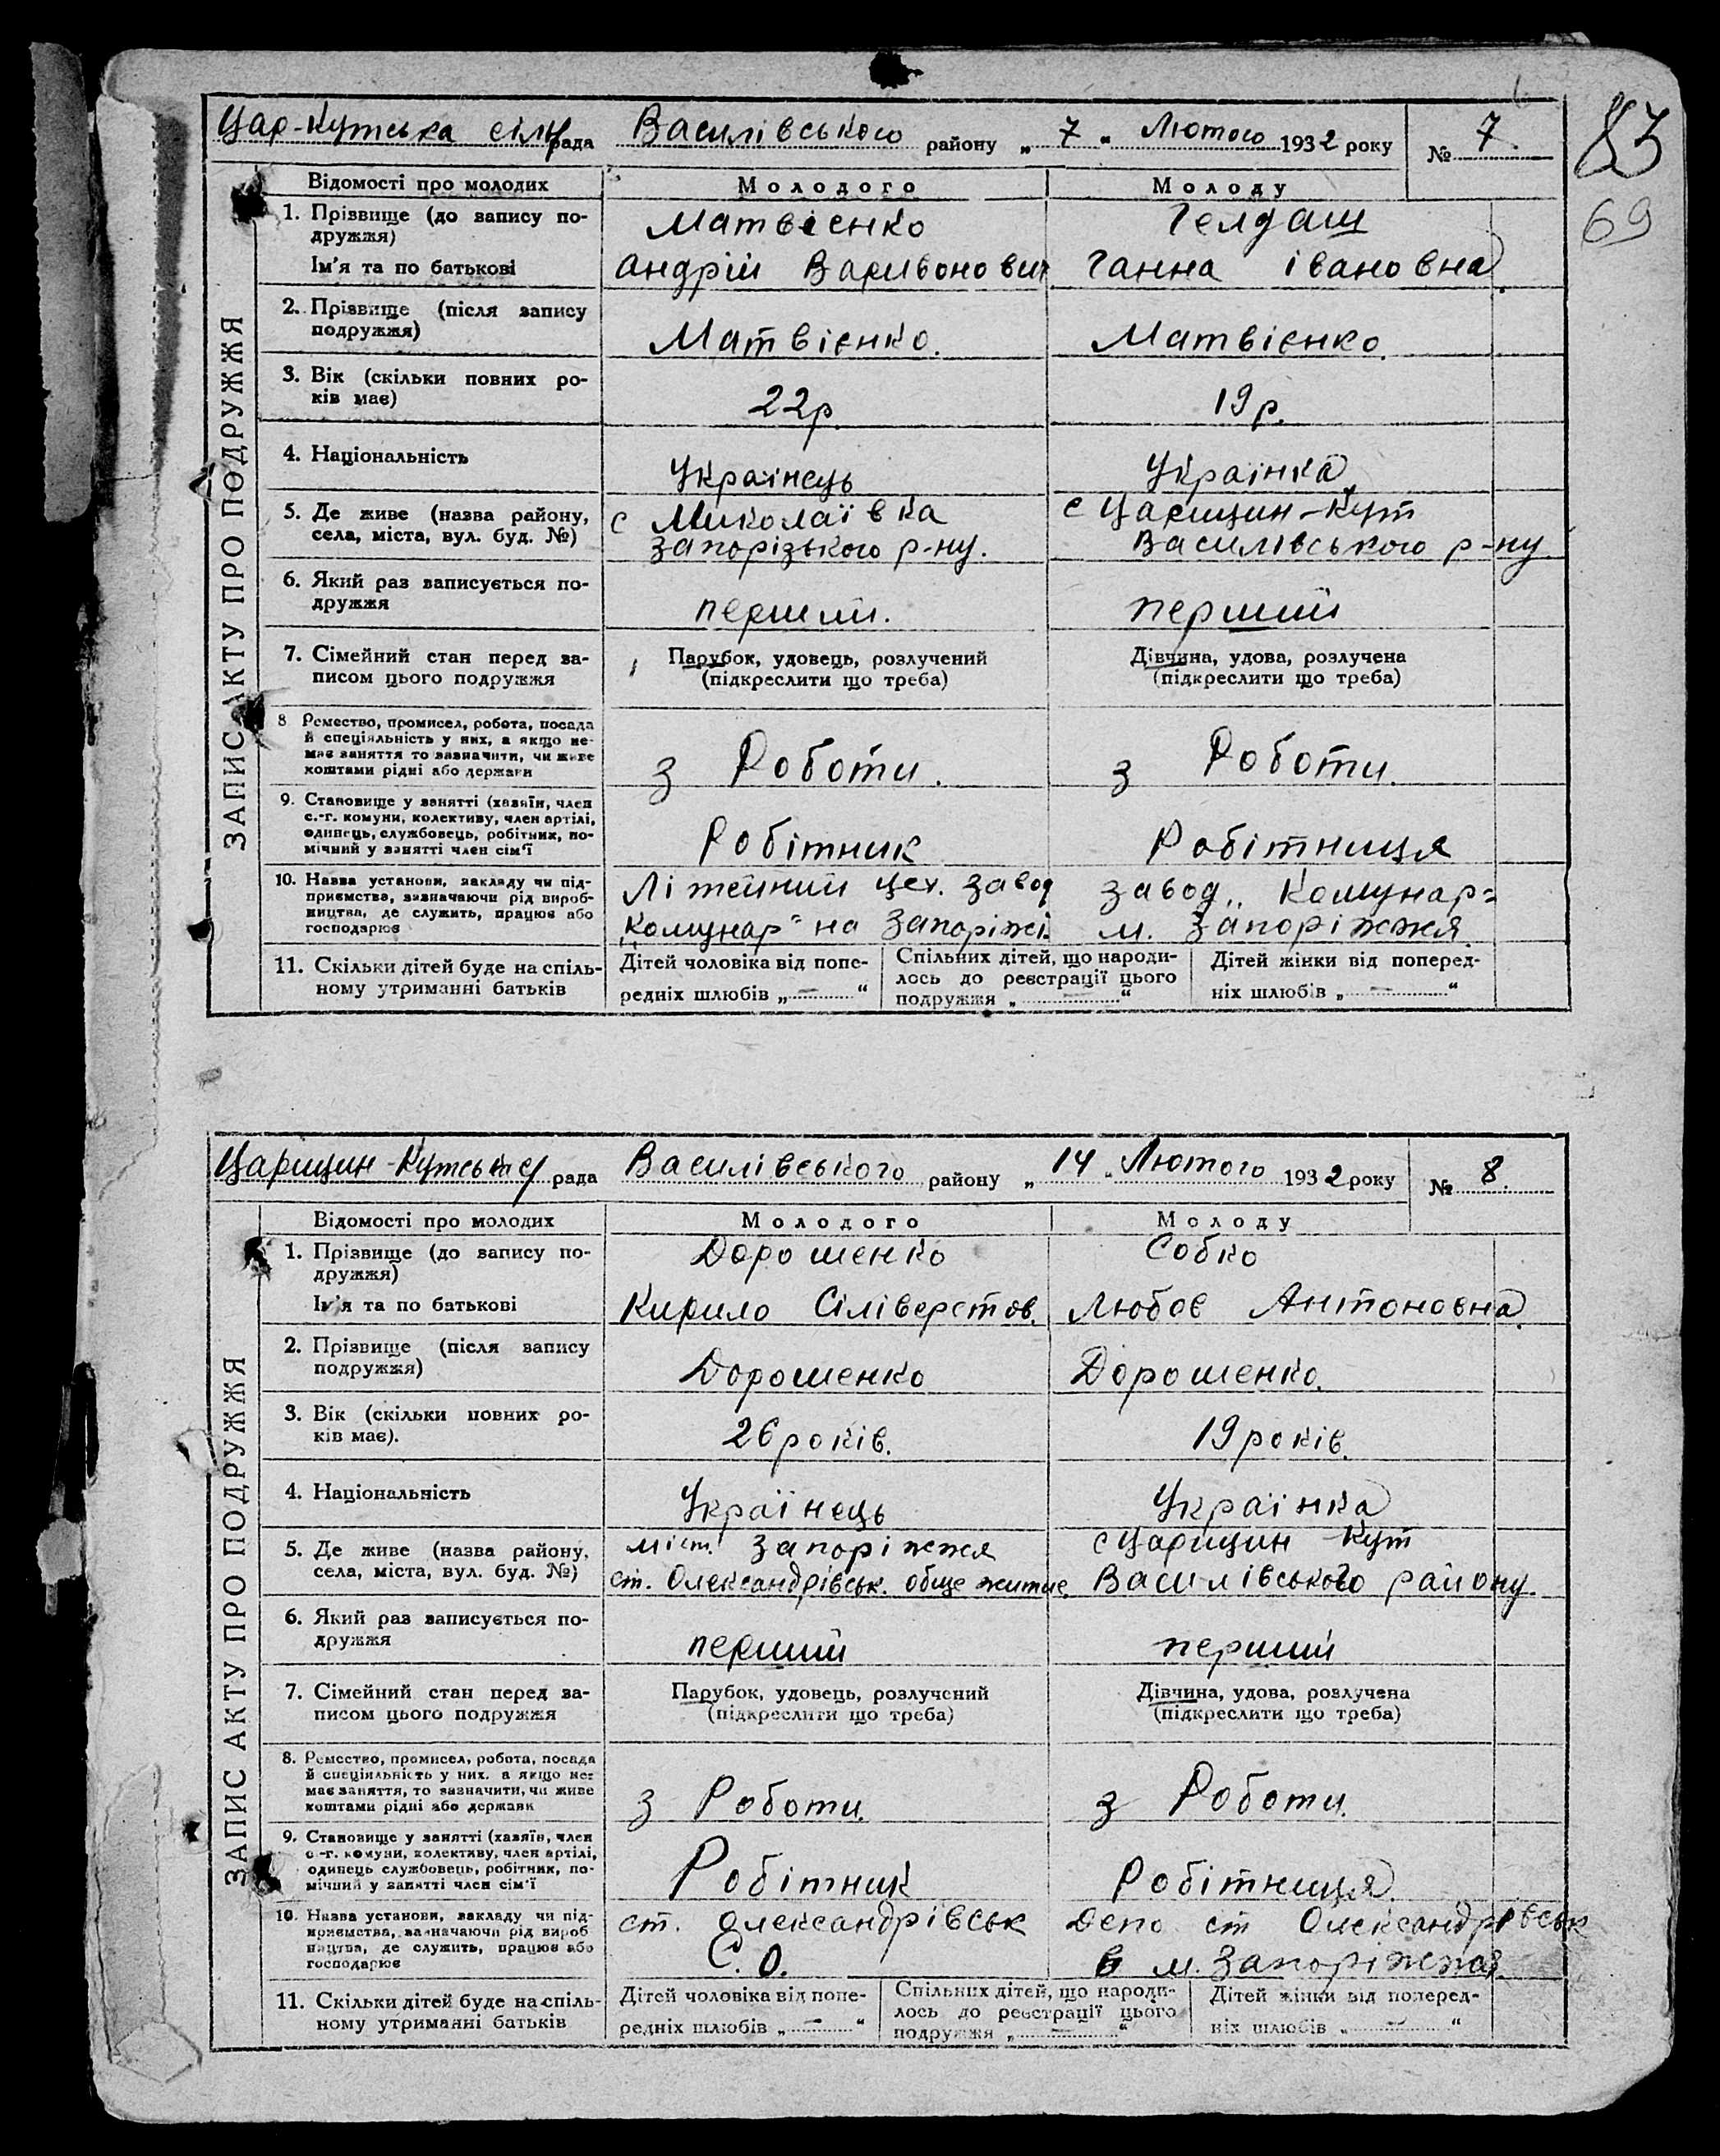 Цар-Кутська сільрада Василівського району „ 7 " Лютого 1932 року № 7.
83
69
ЗАПИС АКТУ ПРО ПОДРУЖЖЯ
Відомості про молодих Молодого Молоду
1. Прізвище (до запису по-
дружжя) Матвієнко Гелдаш
Ім'я та по батькові Андрій Варивонович Ганна Івановна
2. Прізвище (після запису
подружжя) Матвієнко. Матвієнко.
3. Вік (скільки повних ро-
ків має) 22р. 19р.
4. Національність Українець Українка
5. Де живе (назва району, с Миколаївка с Царицин-Кут
села, міста, вул. буд. №) Запорізького р-ну. Василівського р-ну
6. Який раз записується по-
дружжя перший. перший
7. Сімейний стан перед за- Парубок, удовець, розлучений Дівчина, удова, розлучена
писом цього подружжя (підкреслити що треба) (підкреслити що треба)
8 Ремество, промисел, робота, посада
й спеціяльність у них, а якщо не-
має заняття то зазначити, чи живе
коштами рідні або держави з Роботи. з Роботи.
9. Становище у занятті (хазяїн, член
с.-г. комуни, колективу, член артілі,
одинець, службовець, робітник, по-
мічний у занятті член сім'ї Робітник Робітниця
10. Назва установи, закладу чи під-
приємства, зазначаючи рід вироб- Літейний цех. завод завод „Комунар"
ництва, де служить, працює або
господарює „Комунар" на Запоріжі. м. Запоріжжя.
11. Скільки дітей буде на спіль- Дітей чоловіка від попе- Спільних дітей, що народи- Дітей жінки від поперед-
ному утриманні батьків редніх шлюбів „ — “ лось до реєстрації цього ніх шлюбів „ — “
подружжя „ — “
Царицин-Кутська с/рада Василівського району „ 14 " Лютого 1932 року № 8.
ЗАПИС АКТУ ПРО ПОДРУЖЖЯ
Відомості про молодих Молодого Молоду
1. Прізвище (до запису по- Дорошенко Собко
дружжя)
Ім'я та по батькові Кирило Сіліверстов. Любов Антоновна.
2. Прізвище (після запису
подружжя) Дорошенко Дорошенко.
3. Вік (скільки повних ро-
ків має). 26 років. 19 років.
4. Національність Українець Українка
5. Де живе (назва району, міст. Запоріжжя с Царицин Кут
села, міста, вул. буд. №) ст. Олександрівськ. общежитие. Василівського району.
6. Який раз записується по-
дружжя перший перший
7. Сімейний стан перед за- Парубок, удовець, розлучений Дівчина, удова, розлучена
писом цього подружжя (підкреслити що треба) (підкреслити що треба)
8. Ремество, промисел, робота, посада
й спеціяльність у них, а якщо не-
має заняття, то зазначити, чи живе
коштами рідні або держави з Роботи. з Роботи.
9. Становище у занятті (хазяїн, член
с.-г. комуни, колективу, член артілі,
одинець службовець, робітник, по-
мічний у занятті член сім'ї Робітник Робітниця.
10. Назва установи, закладу чи під-
приємства, зазначаючи рід вироб ст. Олександрівськ Депо ст Олександрівськ
ництва, де служить, працює або
господарює С.О. в м. Запоріжжя.
11. Скільки дітей буде на спіль- Дітей чоловіка від попе- Спільних дітей, що народи- Дітей жінки від поперед-
ному утриманні батьків редніх шлюбів „ — “ лось до реєстрації цього ніх шлюбів „ — “
подружжя „ — “